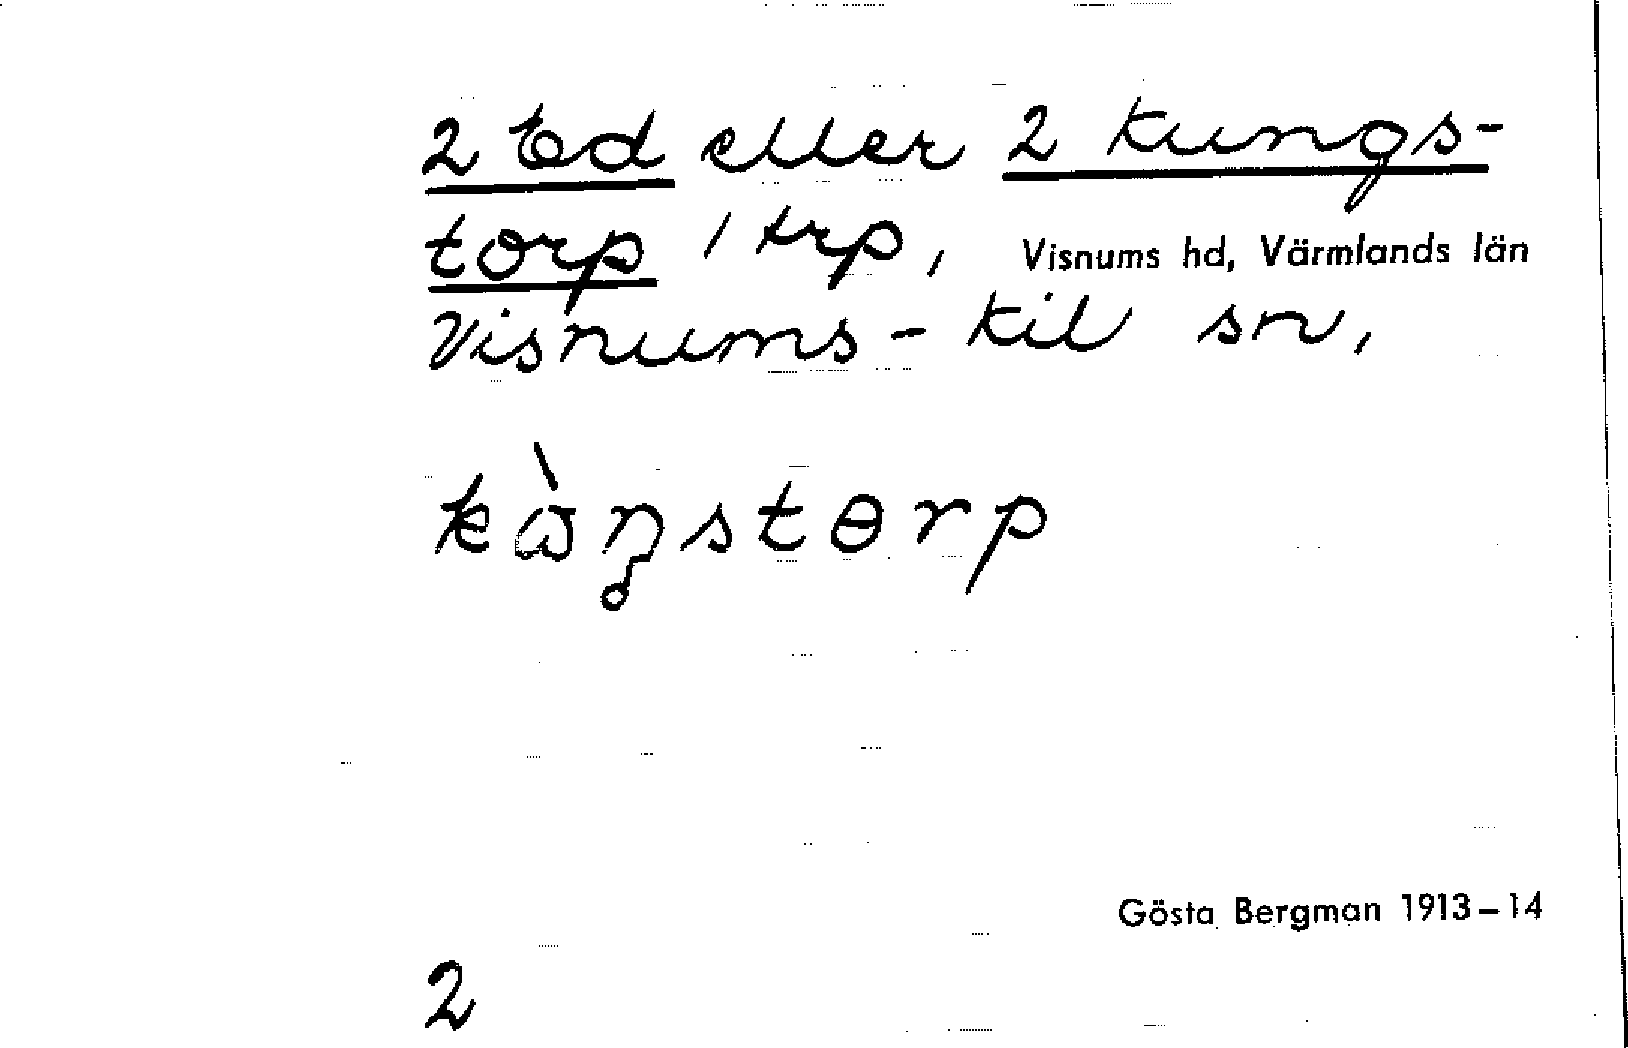 2 Ed eller 2 Kungs-
torp / trp, Visnums hd, Värmlands län
Visnums-Kil sn,
kὼŋstɵrp
Gösta Bergman 1913-14
2